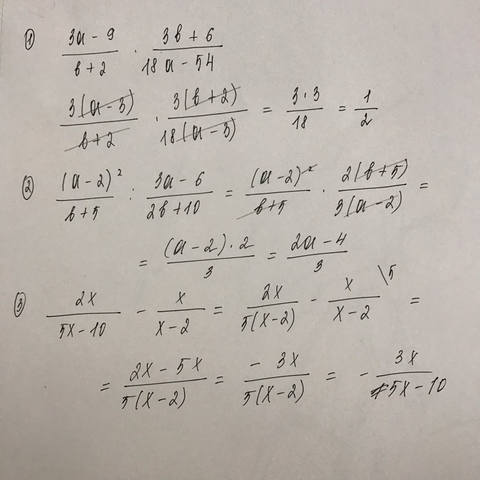 ① (3a - 9)/(b + 2) · (3b + 6)/(18a - 54)
(3(a - 3))/(b + 2) · (3(b + 2))/(18(a - 3)) = (3 · 3)/18 = 1/2
② (a - 2)²/(b + 5) : (3a - 6)/(2b + 10) = (a - 2)²/(b + 5) · (2(b + 5))/(3(a - 2)) =
= ((a - 2) · 2)/3 = (2a - 4)/3
③ 2x/(5x - 10) - x/(x - 2) = 2x/(5(x - 2)) - x/(x - 2) \5 =
= (2x - 5x)/(5(x - 2)) = (- 3x)/(5(x - 2)) = - 3x/(5x - 10)